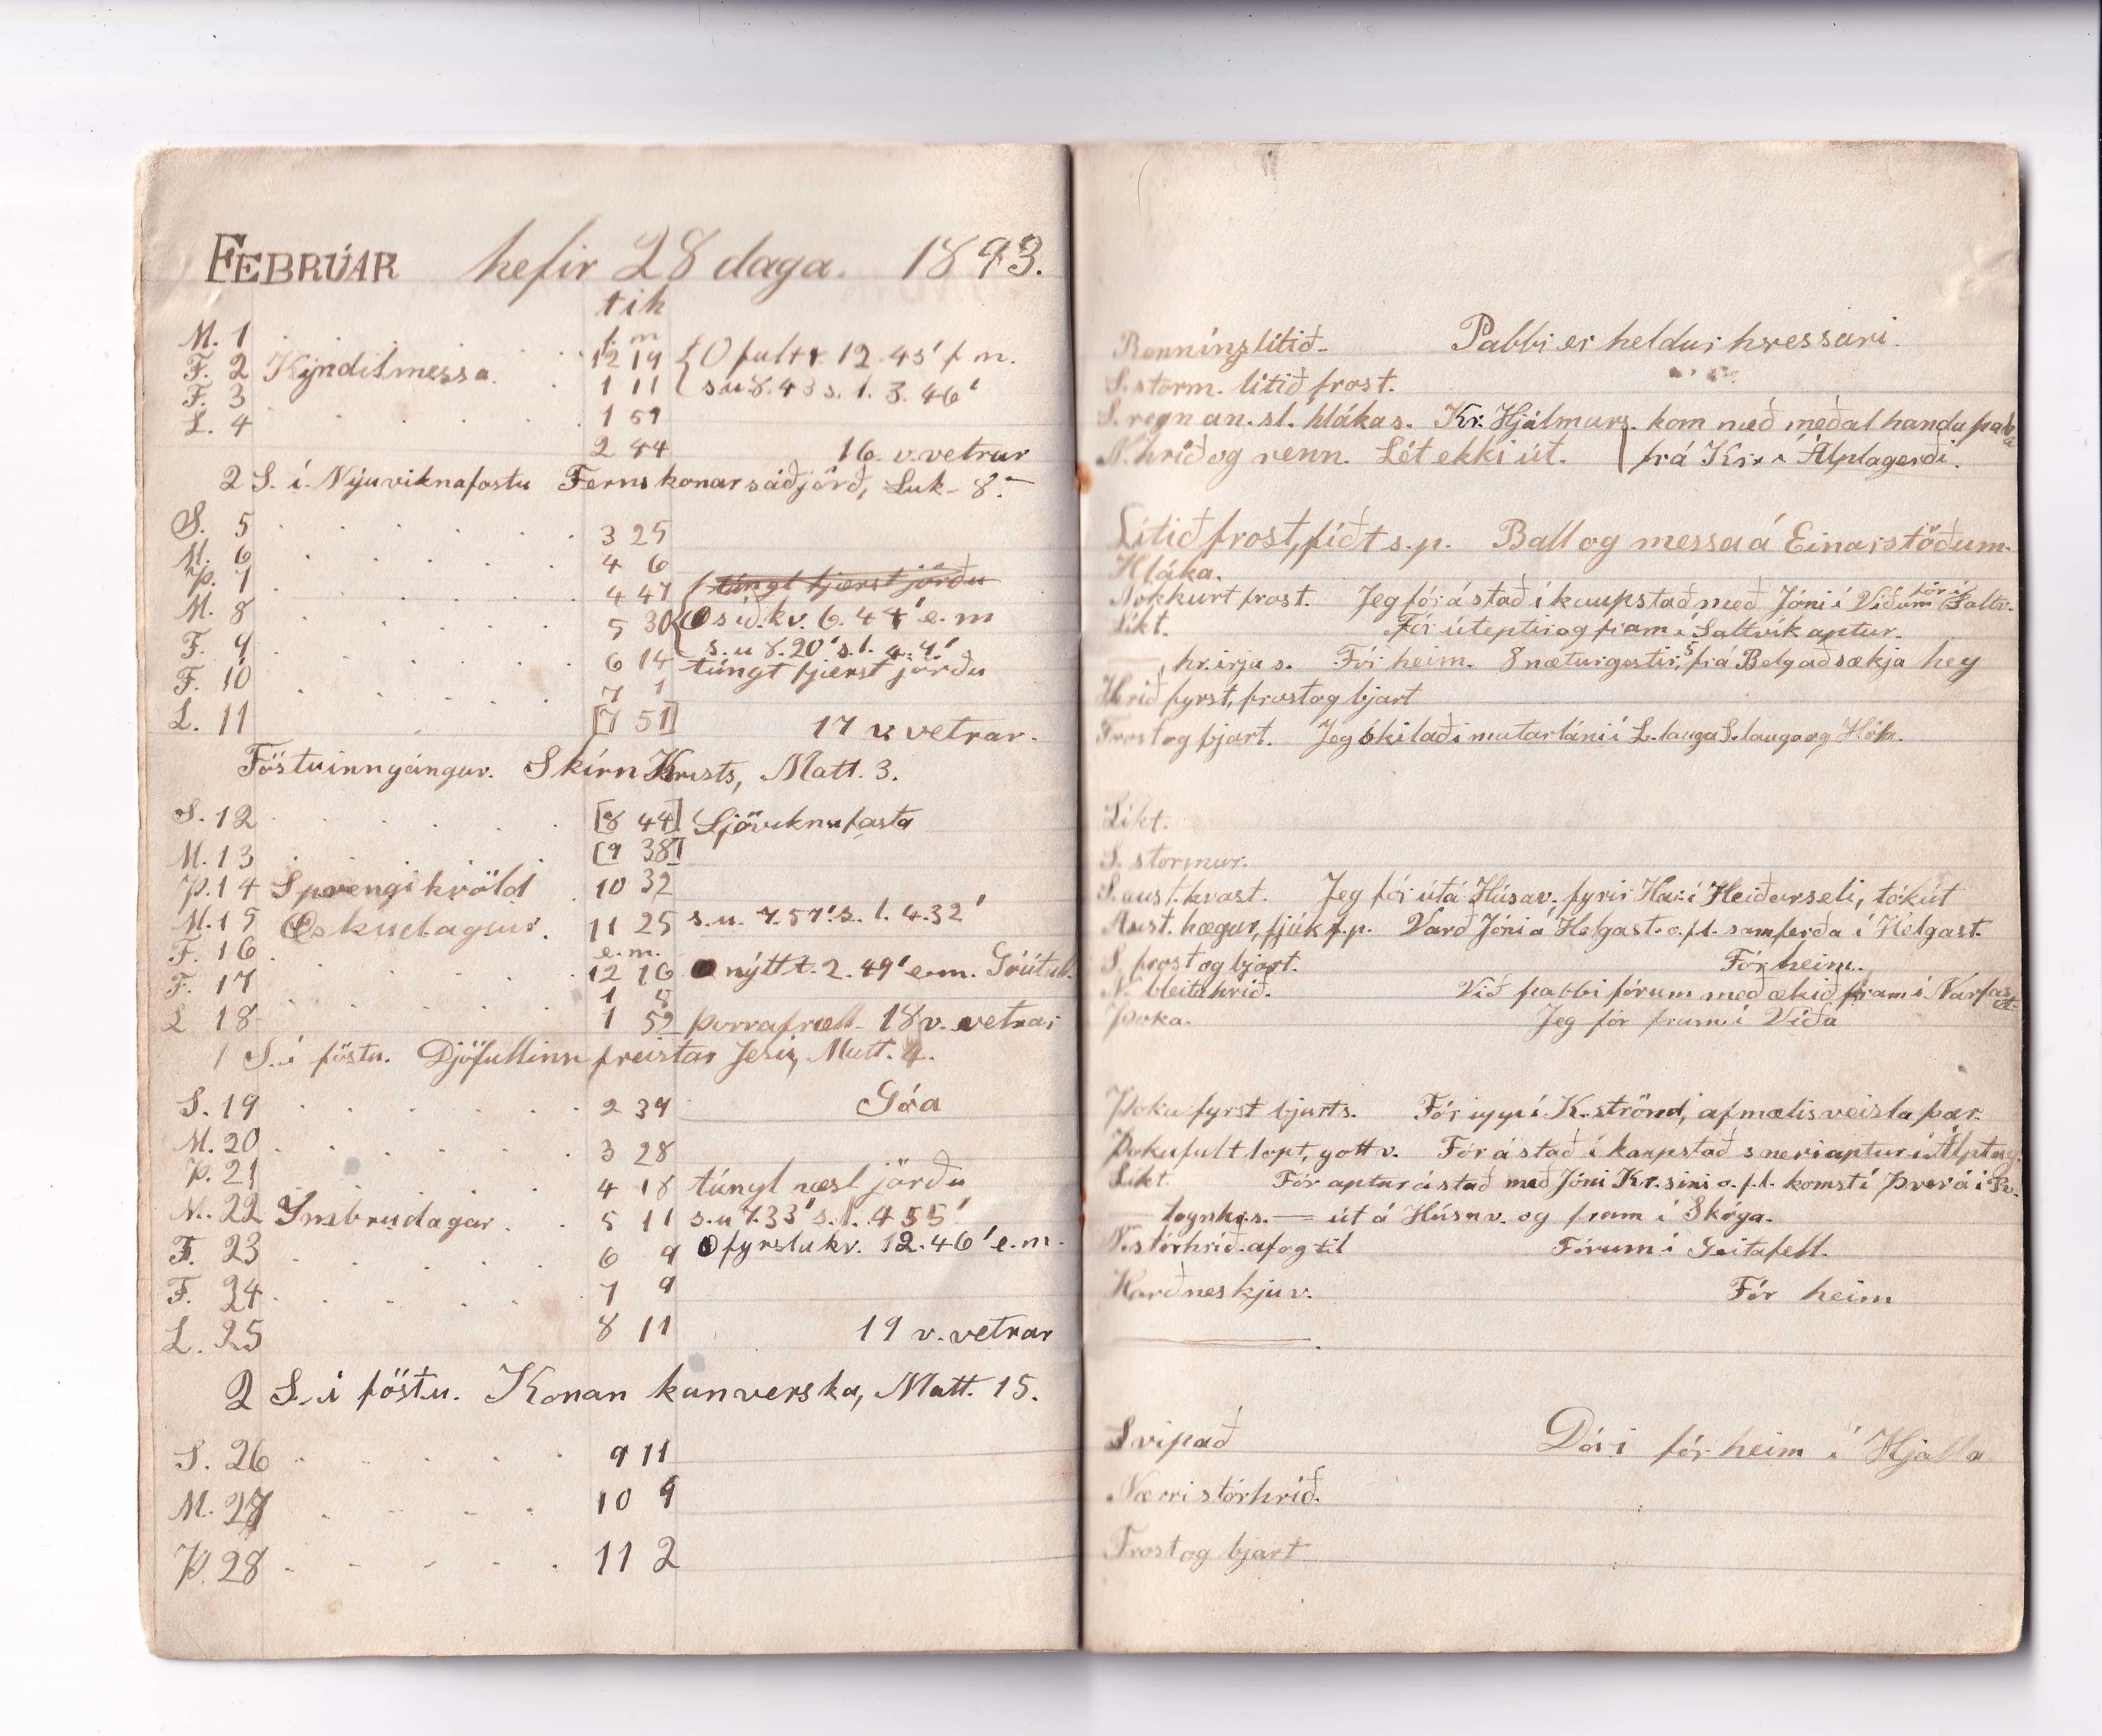 FEBRÚAR hefir 28 daga. 1893.
t i h
f. m
M. 1 12 19 { O fult t. 12.45' f m.
F. 2 Kyndilmessa. 1 11 s.u. 8.43 s. l. 3.46'
F. 3 1 59
L. 4 2 44 16. v. vetrar
2 S. í Níuviknaföstu Ferns konar sáðjörð, Luk. 8.
S. 5 3 25
M. 6 4 6
Þ. 7 4 47 túngl fjærst jörðu
M. 8 5 30 síð. kv. 6.44' e. m
s. u 8.20' s. l. 4.9'
F. 9 6 14 túngl fjærst jörðu
F. 10 7 1
L. 11 [7 51] 17 v. vetrar.
Föstuinngángur. Skírn Krists, Matt. 3.
S. 12 [8 44] Sjöviknafasta
M. 13 [9 38]
Þ. 14 Sprengikvöld 10 32
M. 15 Öskudagur. 11 25 s. u. 7.57' s. l. 4.32'
e. m.
F. 16 12 16 nýtt t. 2.49' e. m.
F. 17 1 8
L 18 1 52 Þorraþræll. 18 v. vetrar
1 S. í föstu. Djöfullinn freistar Jesú, Matt. 4.
S. 19 2 39 Góa
M. 20 3 28
Þ. 21 4 18 túngl næst jörðu
M. 22 Imbrudagar. 5 11 s. u 7.33' s. l. 4 55'
F. 23 6 9 fyrsta kv. 12.46' e. m.
F. 24 7 9
L. 25 8 11 19 v. vetrar
2 S. í föstu. Konan kanverska, Matt. 15.
S. 26 9 11
M. 27 10 9
Þ. 28 11 2
Renníngslítið. Pabbi er heldur hressari.
S. storm. lítið frost.
S. regn an. sl. hláka s. Kr. Hjálmars. kom með meðal handa pabba
N. hríð og renn. Lét ekki út. frá Kr. í Álptagerði.
Lítið frost, þíðt s. p. Ball og messa á Einarstöðum.
Hláka.
Nokkurt frost. Jeg fór á stað í kaupstað með Jóni í Víðum fór í Saltv.
Líkt. Fór út eptir og fram í Saltvík aptur.
— hr. irja s. Fór heim. 8 næturgestir, 5 frá Belg að sækja hey
Hríð fyrst, frost og bjart
Frost og bjart. Jeg skilaði matarláni í L. lauga S. lauga og Hóla.
Líkt.
S. stormur.
S. aust. hvast. Jeg fór út á Húsav. fyrir í Heiðarseli, tók út
Aust. hægur, fjúk s. p. Varð Jóni á Helgast. o. fl. samferða í Helgast.
S. frost og bjart. Fór heim.
N. bleituhríð. Við pabbi fórum með ækið fram í Narfast.
Þoka. Jeg fór fram í Víða
Þoka fyrst bjart s. Fór upp í K. strönd, afmælisveisla þar.
Þokufult lopt, gott v. Fór á stað í kaupstað sneri aptur í Álptag.
Líkt. Fór aptur á stað með Jóni Kr. sini o. fl. komst í Þverá í
— logn hr. s. — út á Húsav. og fram í Skóga.
N. stórhríð af og til Fórum í Geitafell.
Harðneskju v. Fór heim
Svipað Dóri fór heim í Hjalla
Nærri stórhríð.
Frost og bjart